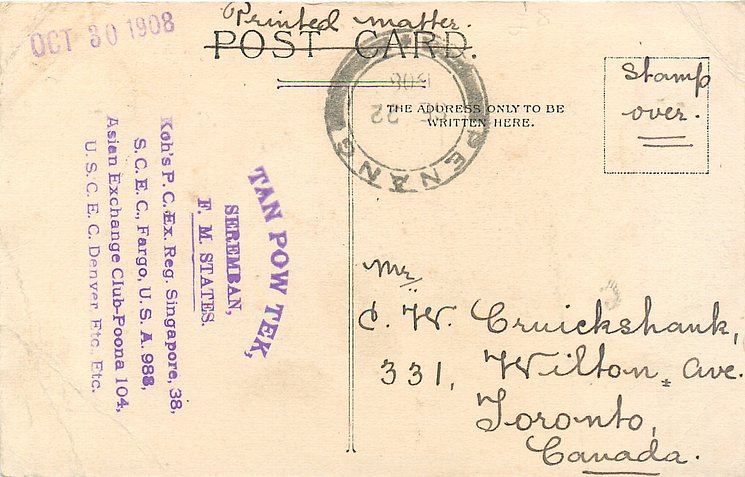 OCT 30 1908
Printed matter.
POST CARD.
THE ADDRESS ONLY TO BE
WRITTEN HERE.
PENANG
22
1908
Stamp
over.
TAN POW TEK,
SEREMBAN,
F. M. STATES.
Koh's P. C. Ex. Reg. Singapore, 38,
S. C. E. C., Fargo, U. S. A. 988,
Asian Exchange Club-Poona 104,
U. S. C. E. C. Denver Etc. Etc.
Mr
C. W. Cruickshank,
331, Wilton Ave.
Toronto,
Canada.